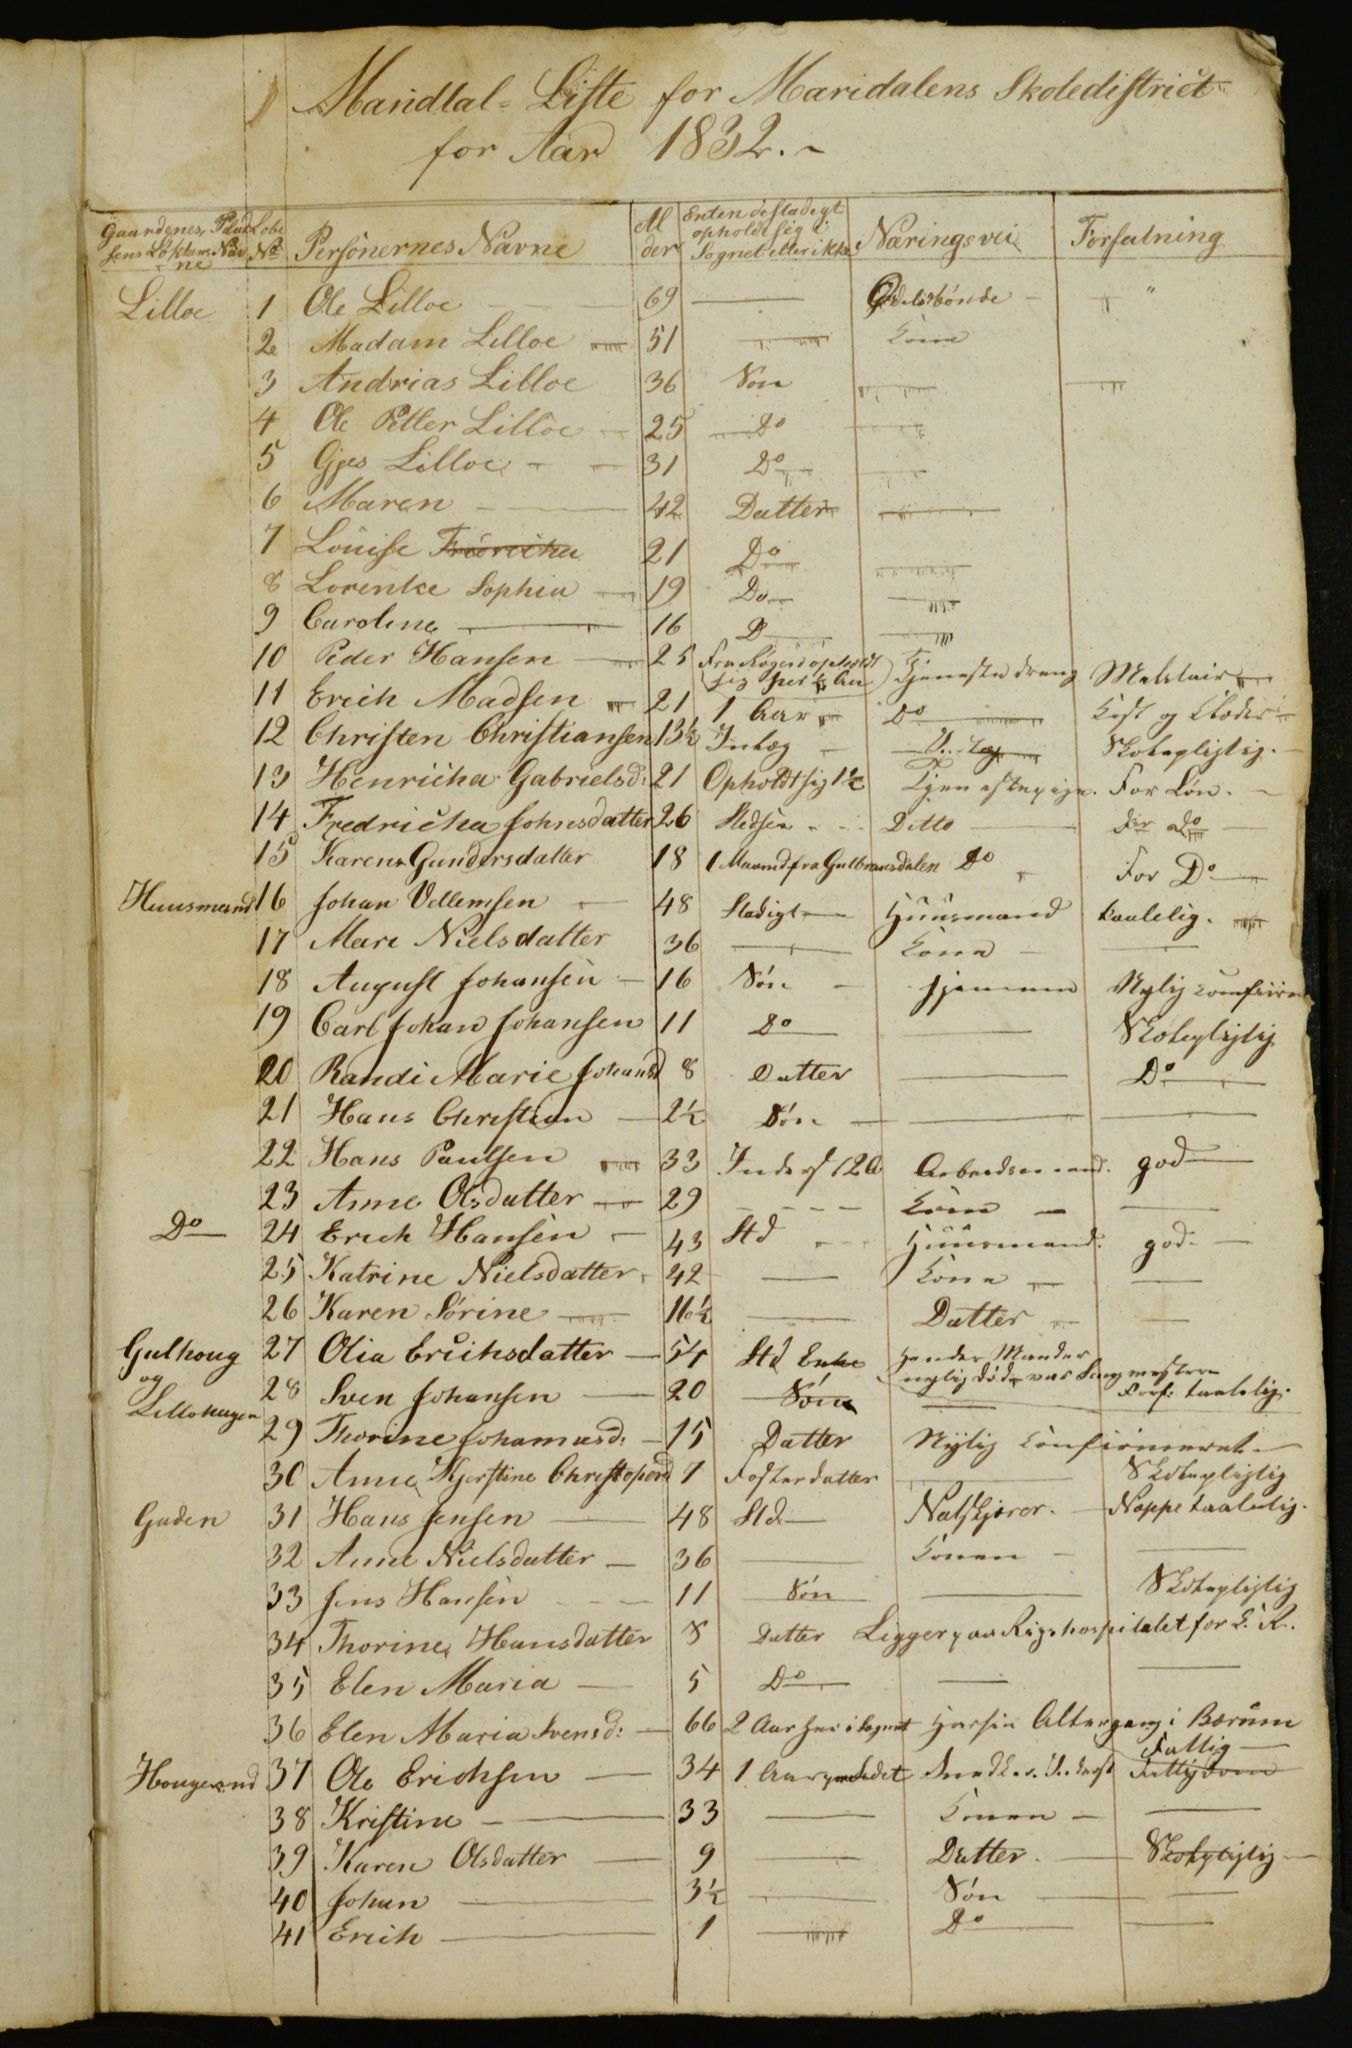 Mandtal-Liste for Maridalens Skoledistrict
for Aar 1832.
Gaardenes, Plad- Løbe Personernes Navne Al Enten de stadigt Næringsvei Forfatning
sens Løkkers Nav No der opholdt sig i
ne Sognet eller ikke
Lilloe 1 Ole Lilloe 69 — Odelsbonde "
2 Madam Lilloe 51 — Kone
3 Andrias Lilloe 36 Søn
4 Ole Petter Lilloe 25 Do
5 Lilloe 31 Do
6 Maren — 42 Datter
7 Louise 21 Do
8 Lorentze Sophia 19 Do
9 Caroline — 16 D
10 Peder Hansen 25 opholdt Tjenestedreng
sig
11 Erich Madsen 21 1 Aar Do Kost og Klæder
12 Christen Christiansen 13½ Indlæg Skolepligtig.
13 Henricha Gabrielsd: 21 Opholdt sig 1½ Tjenestepige. For Løn.
14 Fredricha Johnsdatter 26 Stedse Ditto For Do
15 Karen Gundersdatter 18 1 Maaned fra Gulbransdalen Do For Do
Huusmand 16 Johan Vellemsen 48 Stadigt Huusmand taalelig.
17 Mari Nielsdatter 36 — Kone
18 August Johansen 16 Søn hjemme Nylig
19 Carl Johan Johansen 11 Do — Skolepligtig
20 Randi Marie Johansd 8 Datter — Do
21 Hans Christian 2½ Søn —
22 Hans Paulsen 33 Inderst Arbeidsmand. god
23 Anne Olsdatter 29 Kone —
Do 24 Erich Hansen 43 Std Huusmand. god.
25 Katrine Nielsdatter 42 — Kone —
26 Karen Sørine 16½ — Datter —
Gulhoug 27 Olia Erichsdatter 54 Std Enke hendes Mand
og nylig død, var
28 Sven Johansen 20 Søn — Forf: taalelig.
Lillohagen
29 Thorine Johannesd: 15 Datter Nylig Confirmeret
30 Anne Kjerstine Christopersd 7 Fosterdatter — Skolepligtig
Gaden 31 Hans Jensen 48 Std Neppe taalelig.
32 Anne Nielsdatter 36 — Konen —
33 Jens Hansen 11 Søn — Skolepligtig
34 Thorine Hansdatter 8 Datter Ligger paa Rigshospitalet for
35 Elen Maria 5 Do —
36 Elen Maria Svensd: 66 2 Aar her i Sognet Har sin Altergang i Bærum
Fattig
Hougerend 37 Ole Erichsen 34 1 Aar Inderst Fattigdom
38 Kristine 33 — Konen —
39 Karen Olsdatter 9 — Datter. Skolepligtig
40 Johan 3½ — Søn —
41 Erich 1 — Do —